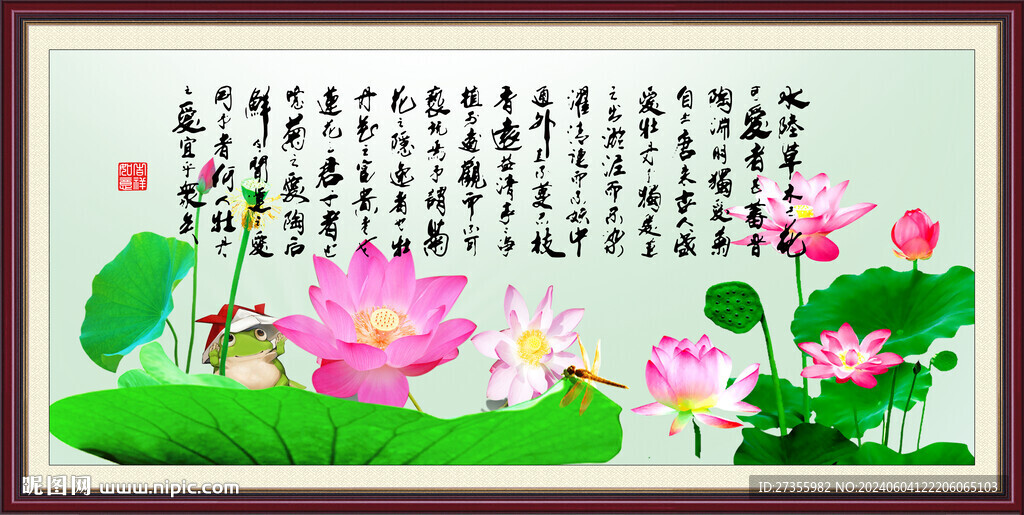 水陸草木之花
可愛者甚蕃晉
陶淵明獨愛菊
自李唐来世人盛
愛牡丹予獨愛蓮
之出淤泥而不染
濯清漣而不妖中
通外直不蔓不枝
香遠益清亭亭净
植可遠觀而不可
褻玩焉予謂菊
花之隱逸者也牡
丹花之富貴者也
蓮花之君子者也
噫菊之愛陶后
鮮有聞蓮之愛
同予者何人牡丹
之愛宜乎衆矣
吉祥如意
昵图网 www.nipic.com
ID:27355982 NO:20240604122206065103